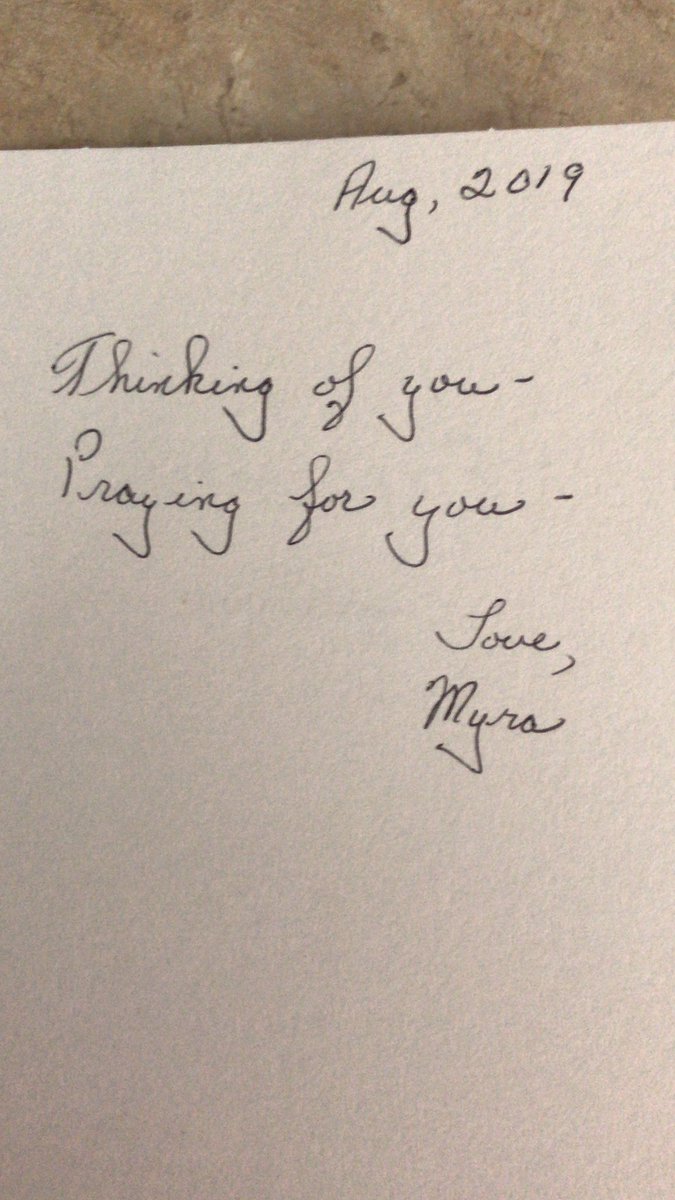 Aug, 2019
Thinking of you -
Praying for you -
Love,
Myra